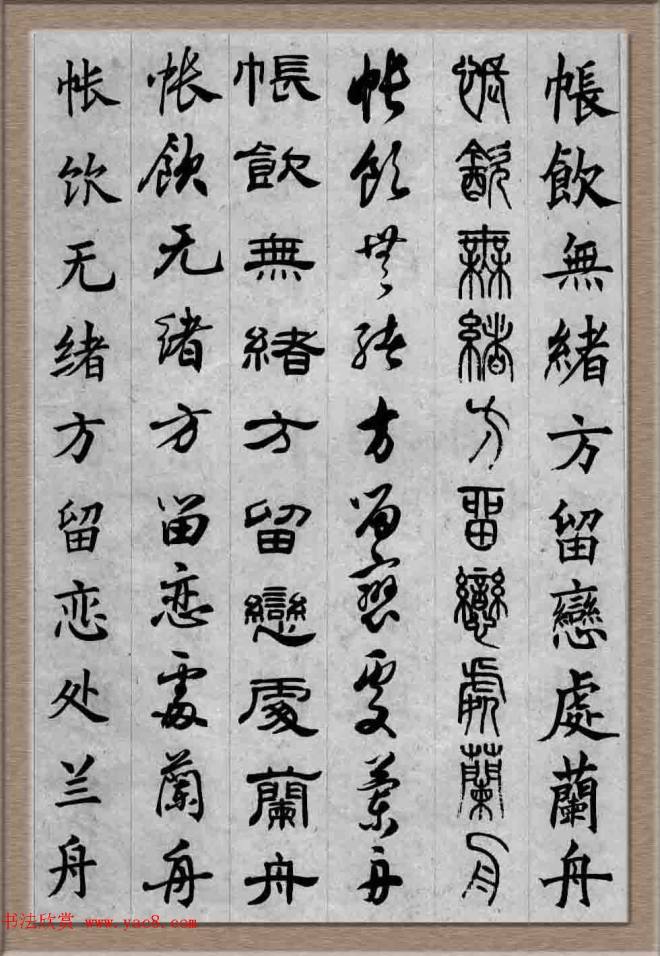 帳飲無緒方留戀處蘭舟
帳飲無緒方留戀處蘭舟
帳飲無緒方留戀處蘭舟
帳飲無緒方留戀處蘭舟
帐飲无緒方留恋處蘭舟
帐饮无绪方留恋处兰舟
书法欣赏 www.yac8.com